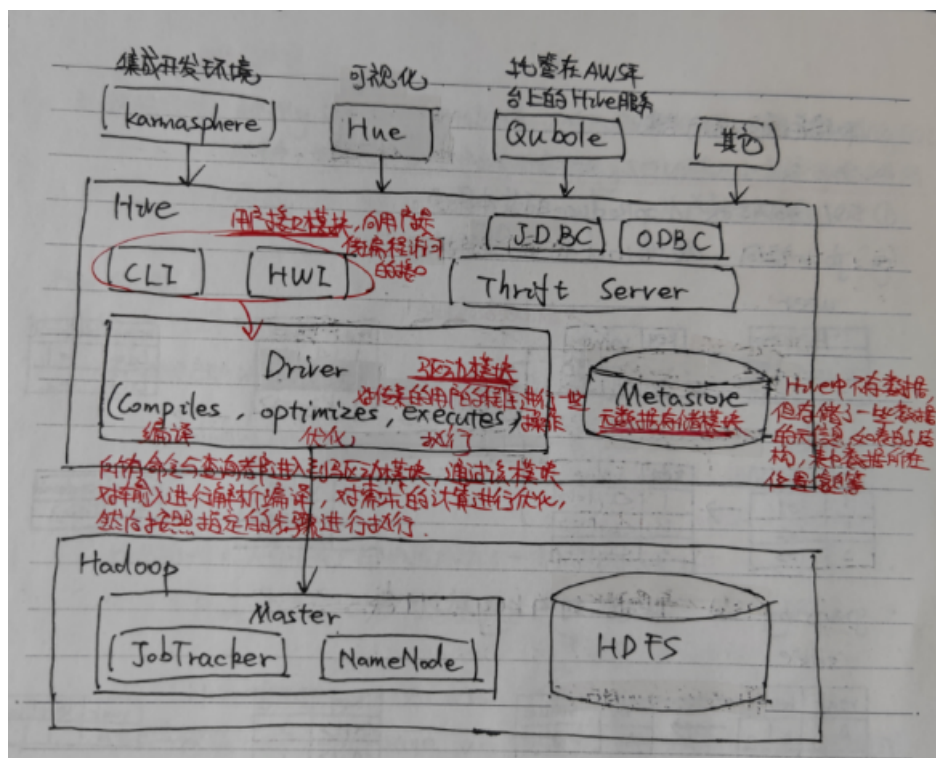 集成开发环境
karmasphere
可视化
Hue
托管在AWS平
台上的Hive服务
Qubole
其它
Hive
用户接口模块,向用户提
供编程访问
的接口
CLI
HWI
JDBC
ODBC
Thrift Server
Driver
驱动模块
(Compiles, optimizes, executes)
对任务的用户的程序进行一些
操作
编译
优化
执行
Metastore
元数据存储模块
Hive中不存数据,
但存储了一些数据
的元信息,如表的名,结
构,表中数据所在
位置信息等
所有命令与查询都进入到驱动模块,通过该模块
对输入进行解析编译,对需求的计算进行优化,
然后按照指定的步骤进行执行.
Hadoop
Master
JobTracker
NameNode
HDFS